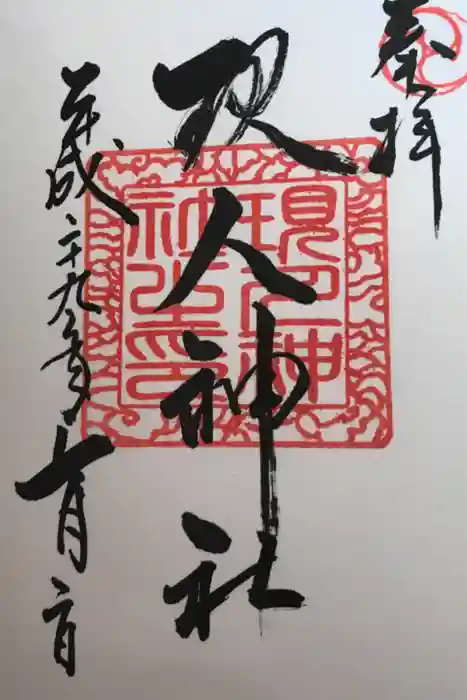 奉拝
現人神社
現人神
社之印
平成二十九年